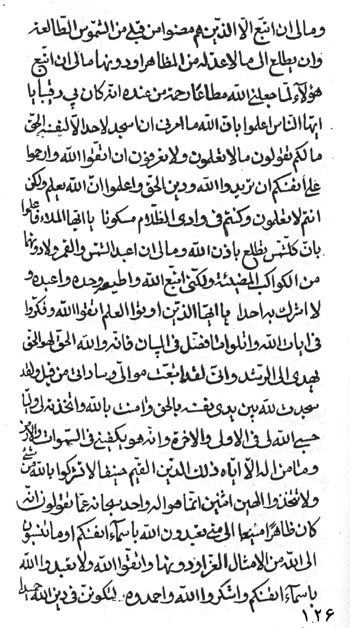 ومالی ان اتبع الا الذینهم مضوا من قبل من الشموس الطالعة
وان یطلع الی مالا عدله من المظاهر او دونها مالی ان اتبع
هؤلاء لما جعلنی الله مطاعا رحمة من عنده انه کان بی رقیبا یا
ایها الناس اعلموا بان الله ما امرنی ان اسجد لاحد الا لنفسه الحق
مالکم تقولون مالا تعلمون ولا تعرفون ان اتقوا الله وارحموا
علی انفسکم ان تریدوا الله ودین الحق واعلموا ان الله یعلم ولکن
انتم لا تعلمون وکنتم فی وادی الظلام مسکونا یا ایها الملاء فاعلموا
بان کل شمس یطلع باذن الله ومالی ان اعبد الشمس والقمر ولا دونهما
من الکواکب المضیئة ولکنی اتبع الله واطیعه وحده واعبده و
لا اشرک به احدا یا ایها الذین اوتوا العلم اتقوا الله وفکروا
فی ایات الله واتلوا ما فصل فی البیان فانه والله الحق لهو الحق
یهدی الی الرشد وانی لقد اتبعت موالی وساداتی من قبل ولقد
سجدت لله بین یدی نفسه بالحق وامنت بالله واتخذته لی ولیا
حسبی الله لی فی الاولی والاخرة وانه هو یکفینی فی السموات والارض
وما من اله الا ایاه ذلک الدین القیم حنیفا لا تشرکوا بالله من شیئ
ولا تتخذوا الهین اثنین انما هو اله واحد سبحانه عما تقولون انه
کان ظاهرا منیعا الی من تعبدون الله باسماء انفسکم او ما تنسبون
الی الله من الامثال العزا ودونها واتقوا الله ولا تعبدوا الله
باسماء انفسکم واشکروا الله واحمدوه لتکونن فی دین الله حمیدا
۱۲۶